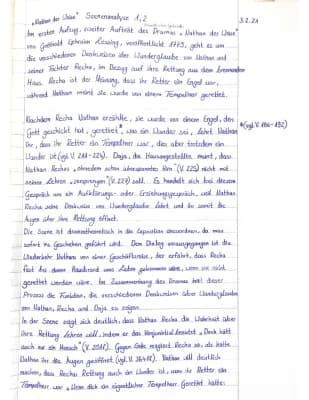 „Nathan der Weise" Szenenanalyse 1,2
3.2.21
Im ersten Aufzug, zweiter Auftritt des Dramas „Nathan der Weise"
von Gotthold Ephraim Lessing, veröffentlicht 1779, geht es um
die verschiedenen Denkweisen über Wunderglaube von Nathan und
seiner Tochter Recha, im Bezug auf ihre Rettung aus dem brennenden
Haus. Recha ist der Meinung, dass ihr Retter ein Engel war,
während Nathan meint sie wurde von einem Tempelherr gerettet.
Nachdem Recha Nathan erzählte, sie wurde von einem Engel, den
Gott geschickt hat, gerettet*, was ein Wunder sei, lehrt Nathan
*(vgl. V. 184-192)
ihr, dass ihr Retter ein Tempelherr war, dies aber trotzdem ein
Wunder ist (vgl. V. 211-224). Daja, die Hausangestellte, meint, dass
Nathan Rechas „ohnedem schon überspanntes Hirn" (V. 225) nicht mit
seinen Lehren „zersprengen" (V. 227) soll. Es handelt sich bei diesem
Gespräch um ein Aufklärungs- oder Erziehungsgespräch, weil Nathan
Recha seine Denkweise von Wunderglaube lehrt und ihr somit die
Augen über ihre Rettung öffnet.
Die Szene ist dramentheoretisch in die Exposition einzuordnen, da man
sofort ins Geschehen geführt wird. Dem Dialog vorausgegangen ist die
Wiederkehr Nathans von einer Geschäftsreise, der erfährt, dass Recha
fast bei einem Hausbrand ums Leben gekommen wäre, wenn sie nicht
gerettet worden wäre. Im Zusammenhang des Dramas hat dieser
Prozess die Funktion, die verschiedenen Denkweisen über Wunderglauben
von Nathan, Recha und Daja zu zeigen.
In der Szene zeigt sich deutlich, dass Nathan Recha die Wahrheit über
ihre Rettung lehren will, indem er das Konjunktiv benutzt
auch nur ein Mensch" Gegen Ende reagiert Recha so, als hätte
Nathan ihr die Augen geöffnet Nathan will deutlich
machen, dass Rechas Rettung auch ein Wunder ist, wenn ihr Retter ein
Tempelherr war. „Wenn dich ein eigentlicher Tempelherr Gerettet hätte: